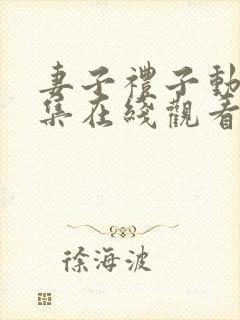 妻子禮子動
集在綫觀看
徐海波